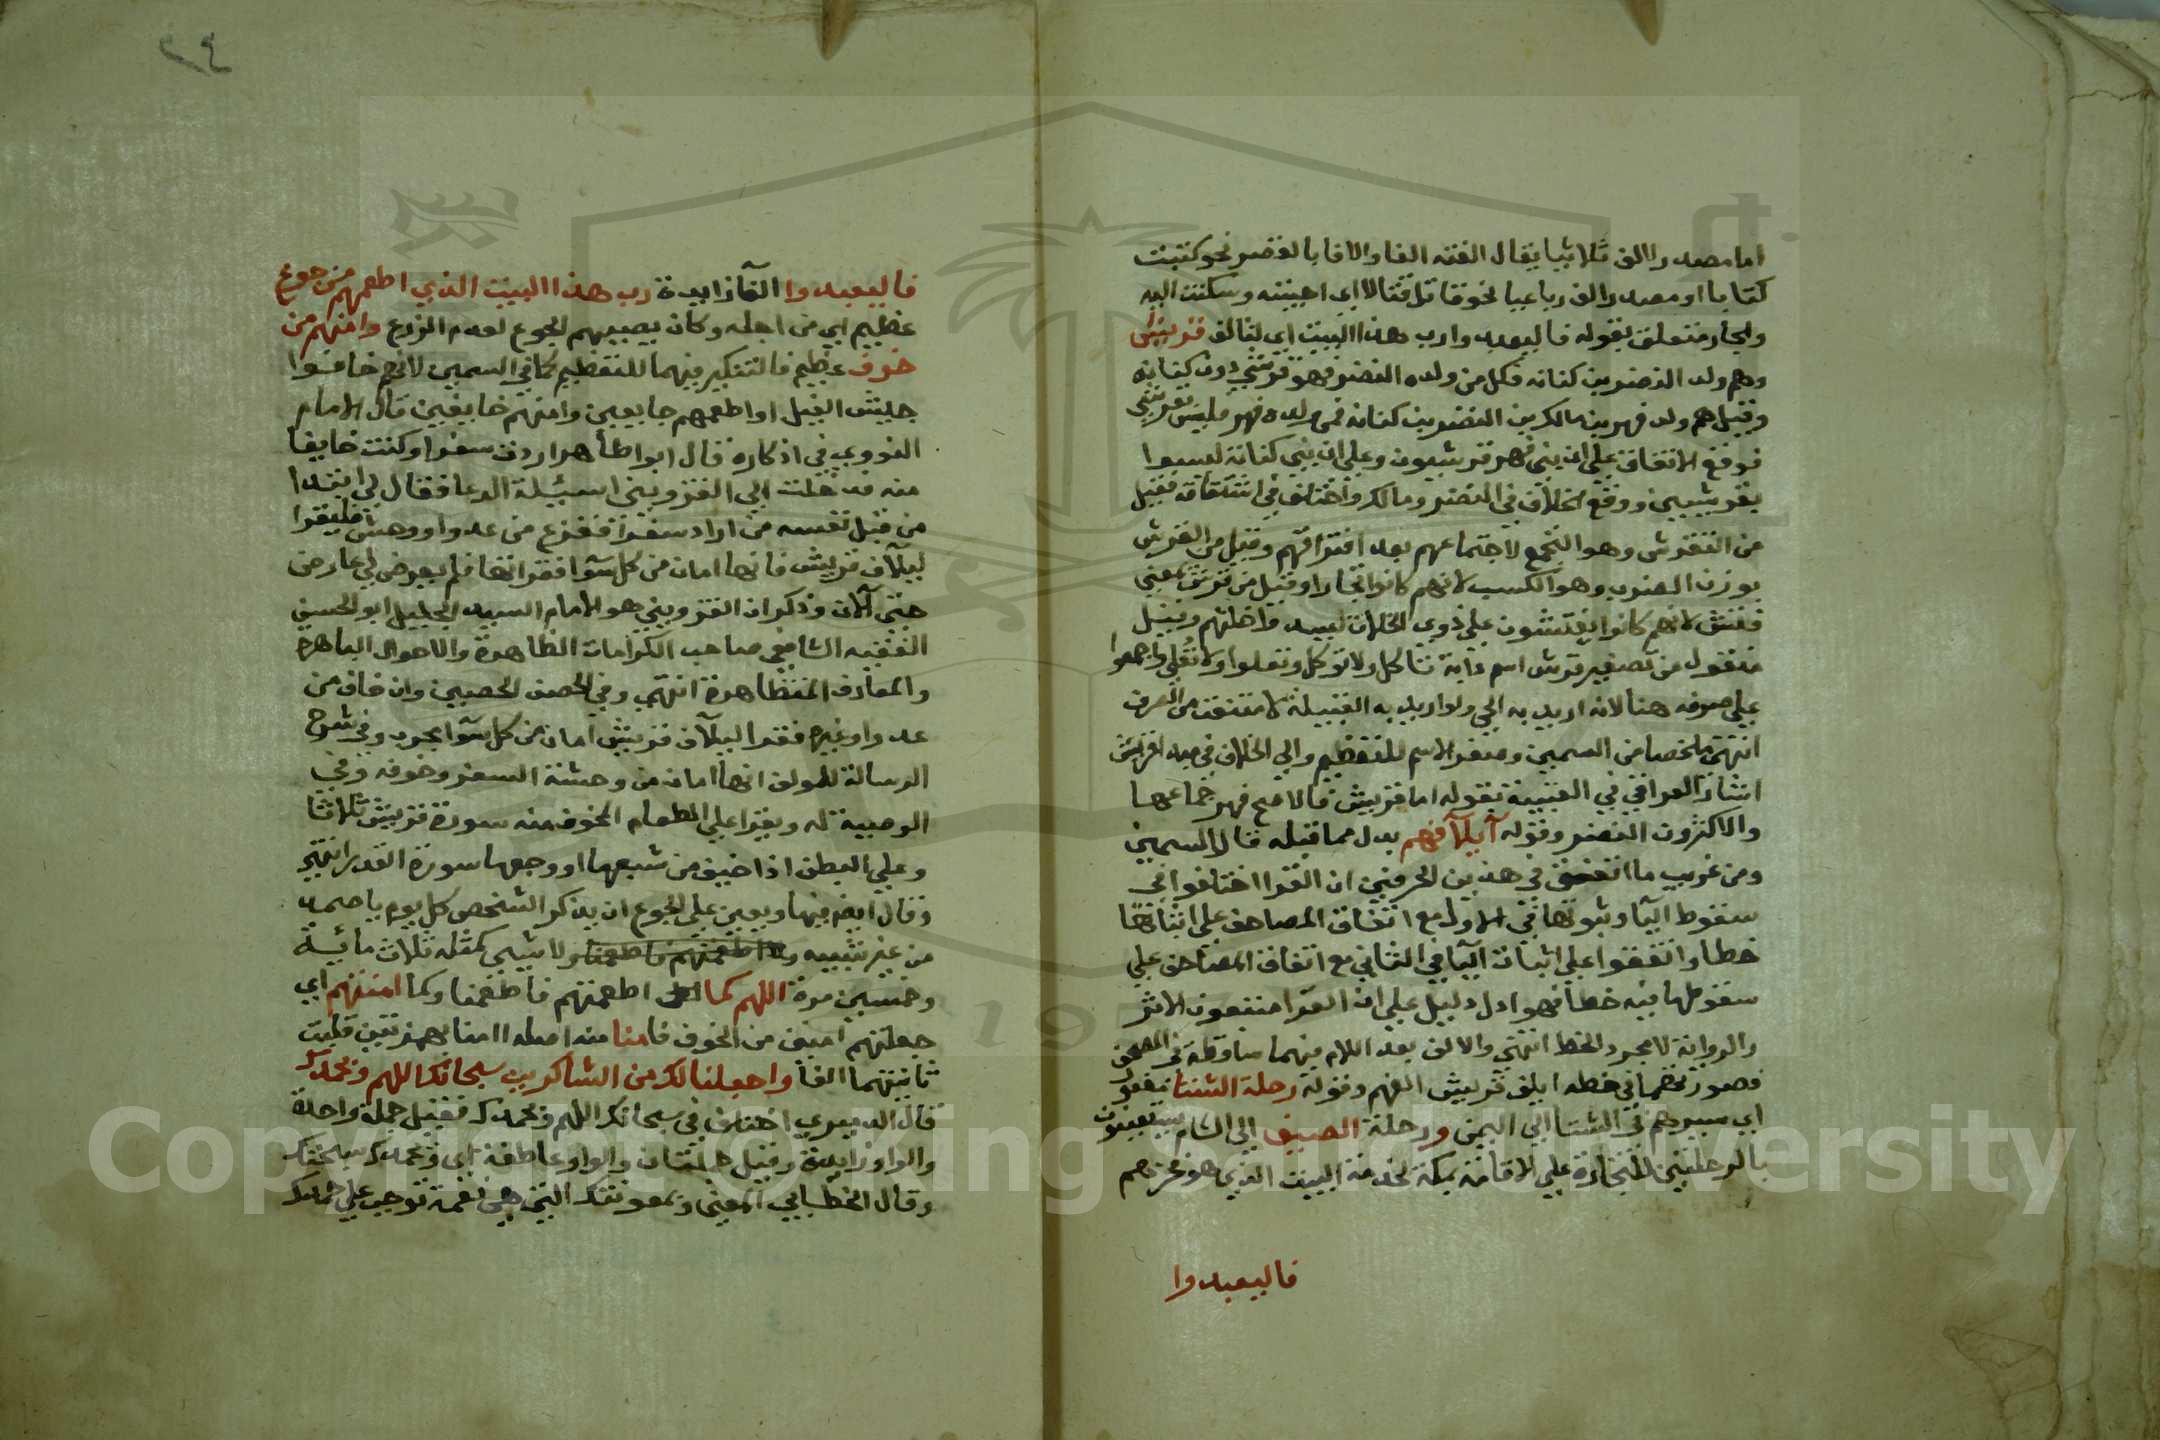 اما مصدر لالف ثلاثيا يقال الفته الفا والافا بالقصر نحو كتبت
كتابا او مصدر الف رباعيا نحو قاتل قتالا اي احببته وسكنت اليه
والجار متعلق بقوله فاليعبدوا رب هذا البيت اي لتالف قريش
وهم ولد النضر بن كنانه فكل من ولده النضر فهو قرشي دون كنانة
وقيل هم ولد فهر بن مالك بن النضر بن كنانه فمن لم يلده فهر فليس بقرشي
فوقع الاتفاق علي ان بني فهر قرشيون وعلي ان بني كنانة ليسوا
بقرشيين ووقع الخلاف في النضر ومالك واختلف في اشتقاقه فقيل
من التقرش وهو التجمع لاجتماعهم بعد افتراقهم وقيل من القرش
بوزن الضرب وهو الكسب لانهم كانوا تجارا وقيل من قرش بمعني
فتش لانهم كانوا يفتشون علي ذوي الخلات ليسدوا خلتهم وقيل
منقول من تصغير قرش اسم دابة تاكل ولا توكل وتعلوا ولا تُعلي واجمعوا
علي صرفه هنا لانه اريد به الحي ولو اريد به القبيلة لامتنعت من الصرف
انتهي ملخصا من السمين وصغر الاسم للتعظيم والي الخلاف في مبدا قريش
اشار العراقي في الفيية بقوله اما قريش فالاصح فهر جماعها
والاكثرون النضر وقوله آيلآفهم بدل مما قبله قال السمين
ومن غريب ما اتفق في هذين الحرفين ان القرا اختلفوا في
سقوط اليا وثبوتها في الاول مع اتفاق المصاحف علي اثباتها
خطا واتفقوا علي اثبات اليا في الثاني مع اتفاق المصاحف علي
سقوطها فيه خطا فهو ادل دليل علي ان القرا متبعون الاثر
والرواية لا مجرد الخط انتهي والالف بعد اللام فيهما ساقطة في المصحف
فصورتهما في خطه ايلف قريش الفهم وقوله رحلة الشتا مفعول
اي سيرهم في الشتا الي اليمن ورحلة الصيف الي الشام يستعينون
بالرحلتين للتجارة علي الاقامة بمكة لخدمة البيت الذي هو فخرهم
فاليعبدوا
فاليعبدوا الفا زايدة رب هذا البيت الذي اطعمهم من جوع
عظيم اي من اجله وكان يصيبهم الجوع لعدم الزرع وامنهم من
خوف عظيم فالتنكير فيهما للتعظيم كما في السمين لانهم خافوا
جيش الفيل او اطعمهم جايعين وامنهم خايفين قال الامام
النووي في اذكاره قال ابو اطاهر اردت سفرا وكنت خايفا
منه فدخلت الي القزويني اسيله الدعا فقال لي ابتدا
من قبل نفسه من اراد سفرا ففزع من عدو او وحش فليقرا
ليلآف قريش فانها امان من كل سوا فقراتها فلم يعرض لي عارض
حتي الان وذكر ان القزويني هو الامام السيد الجليل ابو الحسن
الفقيه الشافعي صاحب الكرامات الظاهرة والاحوال الباهرة
والمعارف المتظاهرة انتهي وفي الحصن الحصين وان خاف من
عدو او غيره فقرا ليلآف قريش امان من كل سوا مجرب وفي شرح
الرسالة للمولف انها امان من وحشة السفر وخوفه وفي
الوصية له ويقرا علي الطعام المخوف منه سورة قريش ثلاثا
وعلي البطن اذا خيف من شبعها او وجعها سورة القدر انتهي
وقال ايضا فيها ويعين علي الجوع ان يذكر الشخص كل يوم يا صمد
من غير تشبيه ولا شي كمثله ثلاث مائة
وخمسين مرة اللهم كما اطعمتهم فاطعمنا وكما امنتهم اي
جعلتهم امنين من الخوف فامنا منه اصله اامنا بهمزتين قلبت
ثانيتهما الفا واجعلنا لك من الشاكرين سبحانك اللهم وبحمدك
قال الدميري اختلف في سبحانك اللهم وبحمدك فقيل جملة واحدة
والواو زايدة وقيل جملتان والواو عاطفة اي وبحمدك سبحتك
وقال الخطابي المعني وبمعونتك التي هي نعمة توجب علي حمدك
Copyright © King Saud University